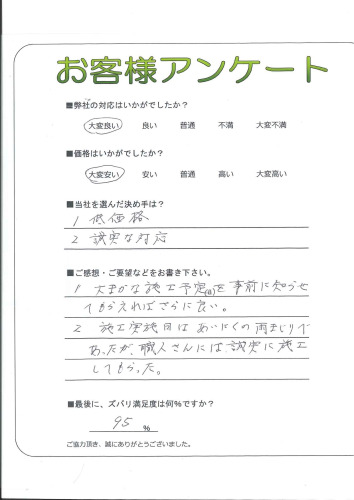 お客様アンケート
■弊社の対応はいかがでしたか？
大変良い 良い 普通 不満 大変不満
■価格はいかがでしたか？
大変安い 安い 普通 高い 大変高い
■当社を選んだ決め手は？
1 低価格
2 誠実な対応
■ご感想・ご要望などをお書き下さい。
1 大まかな施工予定を事前に知らせ
てもらえればさらに良い。
2 施工実施日はあいにくの雨まじりで
あったが、職人さんには誠実に施工
してもらった。
■最後に、ズバリ満足度は何％ですか？
95 %
ご協力頂き、誠にありがとうございました。